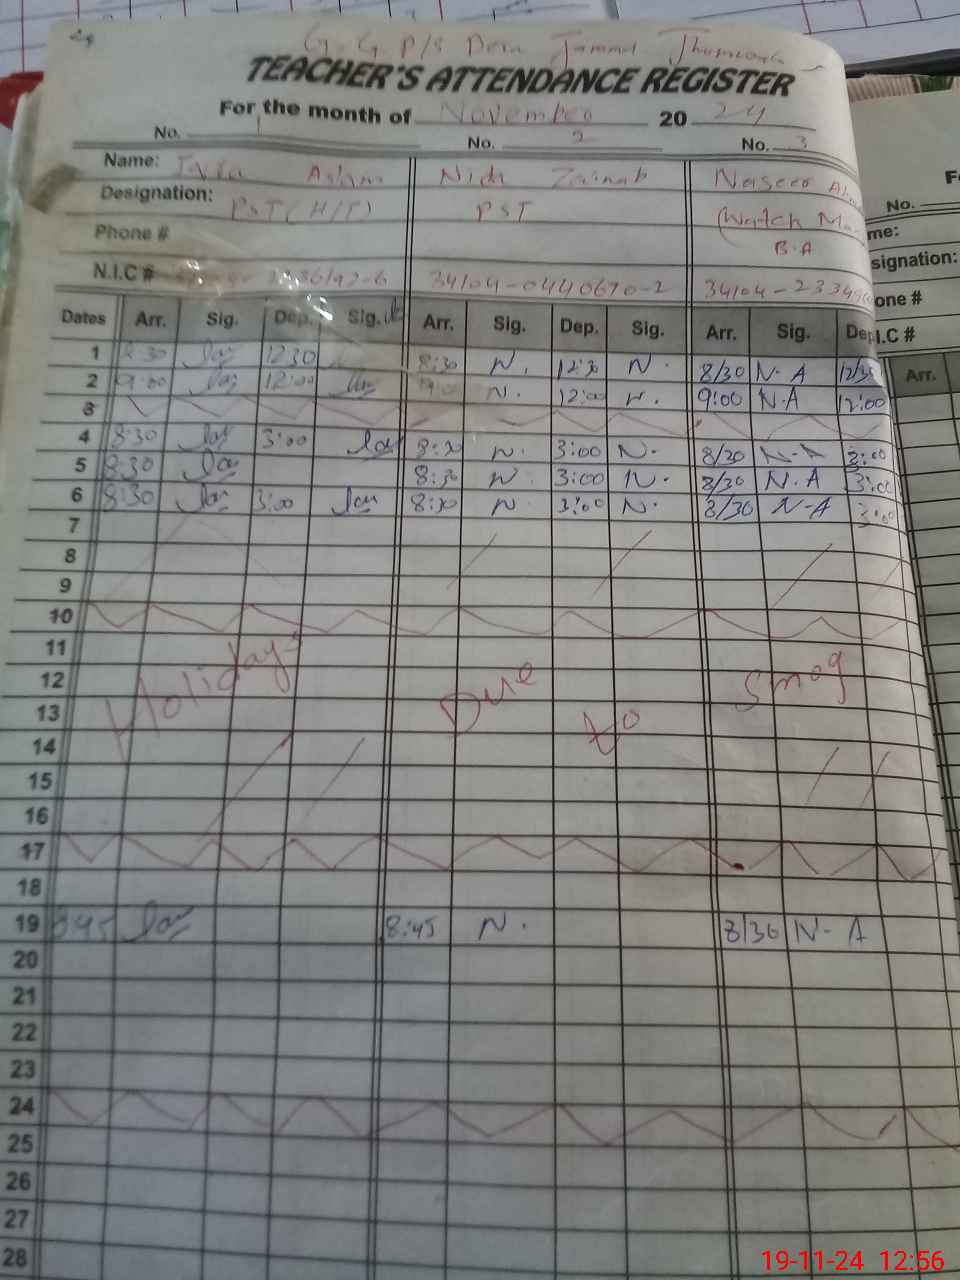 G.G P/S Dera
TEACHER'S ATTENDANCE REGISTER
For the month of November 20 24
No. 1 No. 2 No. 3
Name: Aslam Nida Zainab Naseer
Designation: PST (H/T) PST (Watch
B.A
Phone #
N.I.C # 34104-0440670-2 34104-
Dates Arr. Sig. Dep. Sig. Arr. Sig. Dep. Sig. Arr. Sig. Dep
1 8:30 1230 8:30 N. 12:30 N. 8/30 N-A 12/30
2 9:00 12:00 9:00 N. 12:00 N. 9:00 N-A 12:00
3
4 8:30 3:00 8:30 N. 3:00 N. 8/30 N-A 3:00
5 8:30 8:30 N 3:00 N. 8/30 N-A 3:00
6 8:30 3:00 8:30 N 3:00 N. 8/30 N-A 3:00
7
8
9
10
11
12 Holidays Due to Smog
13
14
15
16
17
18
19 845 8:45 N. 8/30 N-A
20
21
22
23
24
25
26
27
28
No.
me:
signation:
one #
I.C #
Arr.
19-11-24 12:56